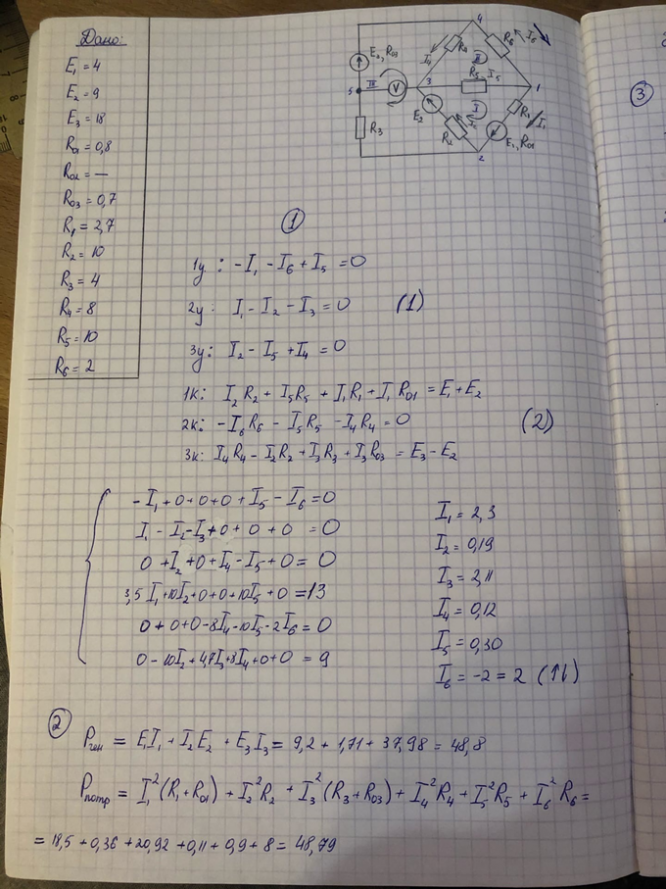 Дано:
E₁ = 4
E₂ = 9
E₃ = 18
R₀₁ = 0,8
R₀₂ = —
R₀₃ = 0,7
R₁ = 2,7
R₂ = 10
R₃ = 4
R₄ = 8
R₅ = 10
R₆ = 2
4
I₆
R₆
I₄
R₄
II
E₃, R₀₃
R₅ I₅
5
III
V
3
1
I
R₁
I₁
E₂
R₃
R₂
E₁, R₀₁
2
③
①
1у: -I₁ - I₆ + I₅ = 0
2у: I₁ - I₂ - I₃ = 0 (1)
3у: I₂ - I₅ + I₄ = 0
1к: I₂R₂ + I₅R₅ + I₁R₁ + I₁R₀₁ = E₁ + E₂
2к: -I₆R₆ - I₅R₅ - I₄R₄ = 0 (2)
3к: I₄R₄ - I₂R₂ + I₃R₃ + I₃R₀₃ = E₃ - E₂
-I₁ + 0 + 0 + 0 + I₅ - I₆ = 0
I₁ - I₂ - I₃ + 0 + 0 + 0 = 0
0 + I₂ + 0 + I₄ - I₅ + 0 = 0
3,5 I₁ + 10I₂ + 0 + 0 + 10I₅ + 0 = 13
0 + 0 + 0 - 8I₄ - 10I₅ - 2I₆ = 0
0 - 10I₂ + 4,7I₃ + 8I₄ + 0 + 0 = 9
I₁ = 2,3
I₂ = 0,19
I₃ = 2,11
I₄ = 0,12
I₅ = 0,30
I₆ = -2 = 2 (↑↓)
②
Pген = E₁I₁ + I₂E₂ + E₃I₃ = 9,2 + 1,71 + 37,98 = 48,8
Pпотр = I₁²(R₁ + R₀₁) + I₂²R₂ + I₃²(R₃ + R₀₃) + I₄²R₄ + I₅²R₅ + I₆²R₆ =
= 18,5 + 0,36 + 20,92 + 0,11 + 0,9 + 8 = 48,79